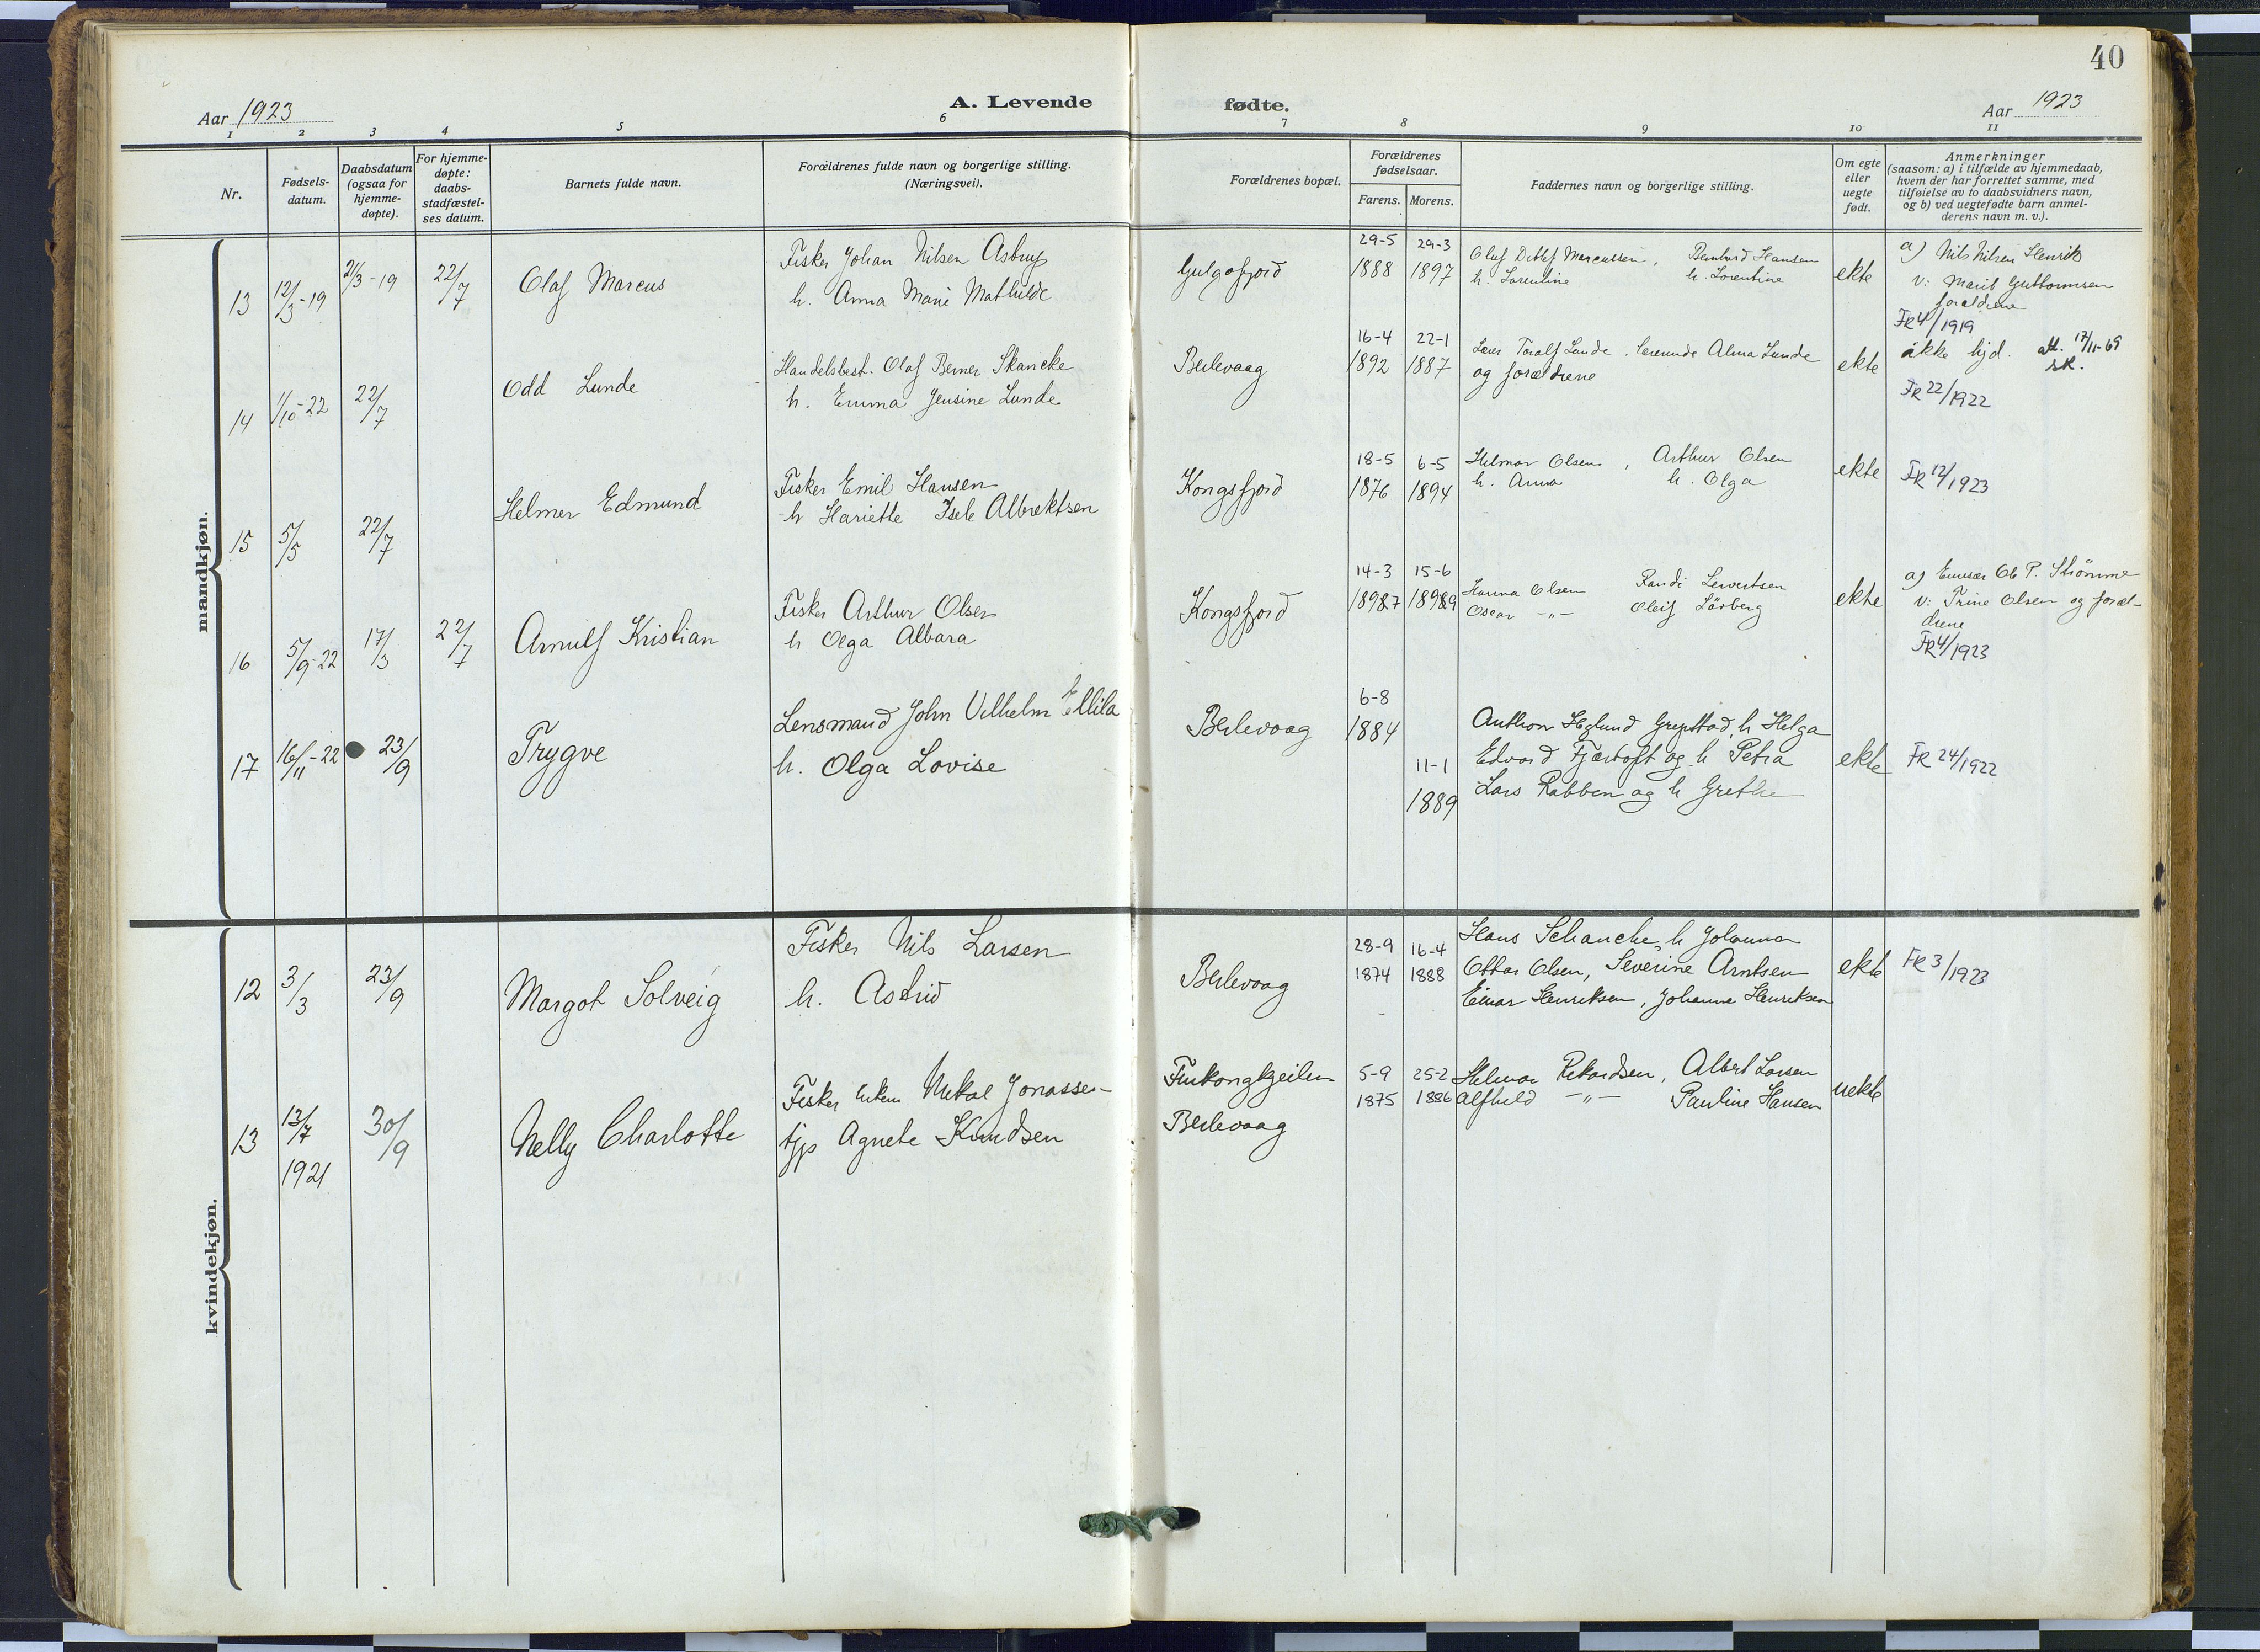 40
Aar 1923
A. Levende
fødte.
Aar 1923
1 2 3 4 5 6 7 8 9 10 11
Nr.
Fødsels-
datum.
Daabsdatum
(ogsaa for
hjemme-
døpte).
For hjemme-
døpte:
daabs-
stadfæstel-
ses datum.
Barnets fulde navn.
Forældrenes fulde navn og borgerlige stilling.
(Næringsvei).
Forældrenes bopæl.
Forældrenes
fødselsaar.
Farens. Morens.
Faddernes navn og borgerlige stilling.
Om egte
eller
uegte
født.
Anmerkninger
(saasom: a) i tilfælde av hjemmedaab,
hvem der har forrettet samme, med
tilføielse av to daabsvidners navn,
og b) ved uegtefødte barn anmel-
derens navn m. v.).
mandkjøn.
13 12/3-19 21/3-19 22/7 Olaf Marcus
Fisker Johan Nilsen Astrup
h. Anna Marie Mathilde
Gulgofjord
29-5 29-3
1888 1897
Oluf Ditlef Marcussen, Bernhard Hansen
h. Lorentine h. Lorentine
ekte
a) Nils Nilsen Henrik
v: Marit Guttormsen
forældrene
FR 4/1919
14 1/10-22 22/7 Odd Lunde
Handelsbest. Olaf Berner Skancke
h. Emma Jensine Lunde
Berlevaag
16-4 22-1
1892 1887
Lærer Toralf Lunde, lærerinde Alma Lunde
og forældrene
ekte
ikke hjd. att. 17/11-69
sk.
FR 22/1922
15 5/5 22/7 Helmer Edmund
Fisker Emil Hansen
h Hariette Isele Albrektsen
Kongsfjord
18-5 6-5
1876 1894
Helmar Olsen, Arthur Olsen
h. Anna h. Olga
ekte
FR 12/1923
16 5/9-22 17/3 22/7 Arnulf Kristian
Fisker Arthur Olsen
h Olga Albara
Kongsfjord
14-3 15-6
18987 18989
Hanna Olsen Randi Lewertsen
Oscar -"- Oleif Lövberg
ekte
a) Emissær Ole P. Strömme
v: Trine Olsen og foræl-
drene
FR 4/1923
17 16/11-22 23/9 Trygve
Lensmand John Vilhelm Ellila
h. Olga Lovise
Berlevaag
6-8
1884
11-1
1889
Anthon Høglund Grypstad, h Helga
Edvard Fjærtoft og h Petra
Lars Rabben og h Grethe
ekte
FR 24/1922
kvindekjøn.
12 3/3 23/9 Margot Solveig
Fisker Nils Larsen
h. Astrid
Berlevaag
28-9 16-4
1874 1888
Hans Schanche, h Johanna
Ottar Olsen, Severine Arntsen
Einar Henriksen, Johanna Henriksen
ekte
FR 3/1923
13 13/7 30/9 Nelly Charlotte
1921
Fisker enkem Mikal Jonassen
tjp Agnete Knudsen
Finkongkjeilen
Berlevaag
5-9 25-2
1875 1886
Helmar Rikardsen, Albert Larsen
Alfhild -"- Pauline Hansen
uekte